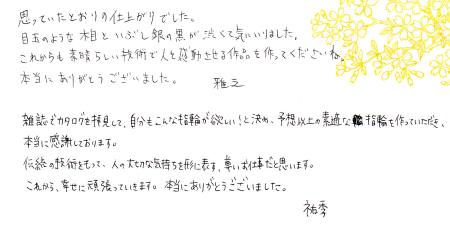 思っていたとおりの仕上がりでした。
目玉のような木目といぶし銀の黒が渋くて気にいりました。
これからも素晴らしい技術で人を感動させる作品を作ってくださいね。
本当にありがとうございました。
雅之
雑誌でカタログを拝見して、自分もこんな指輪が欲しい！と決め、予想以上の素適な指輪を作っていただき、
本当に感謝しております。
伝統の技術をもって、人の大切な気持ちを形に表す、尊いお仕事だと思います。
これから、幸せに頑張っていきます。本当にありがとうございました。
祐季